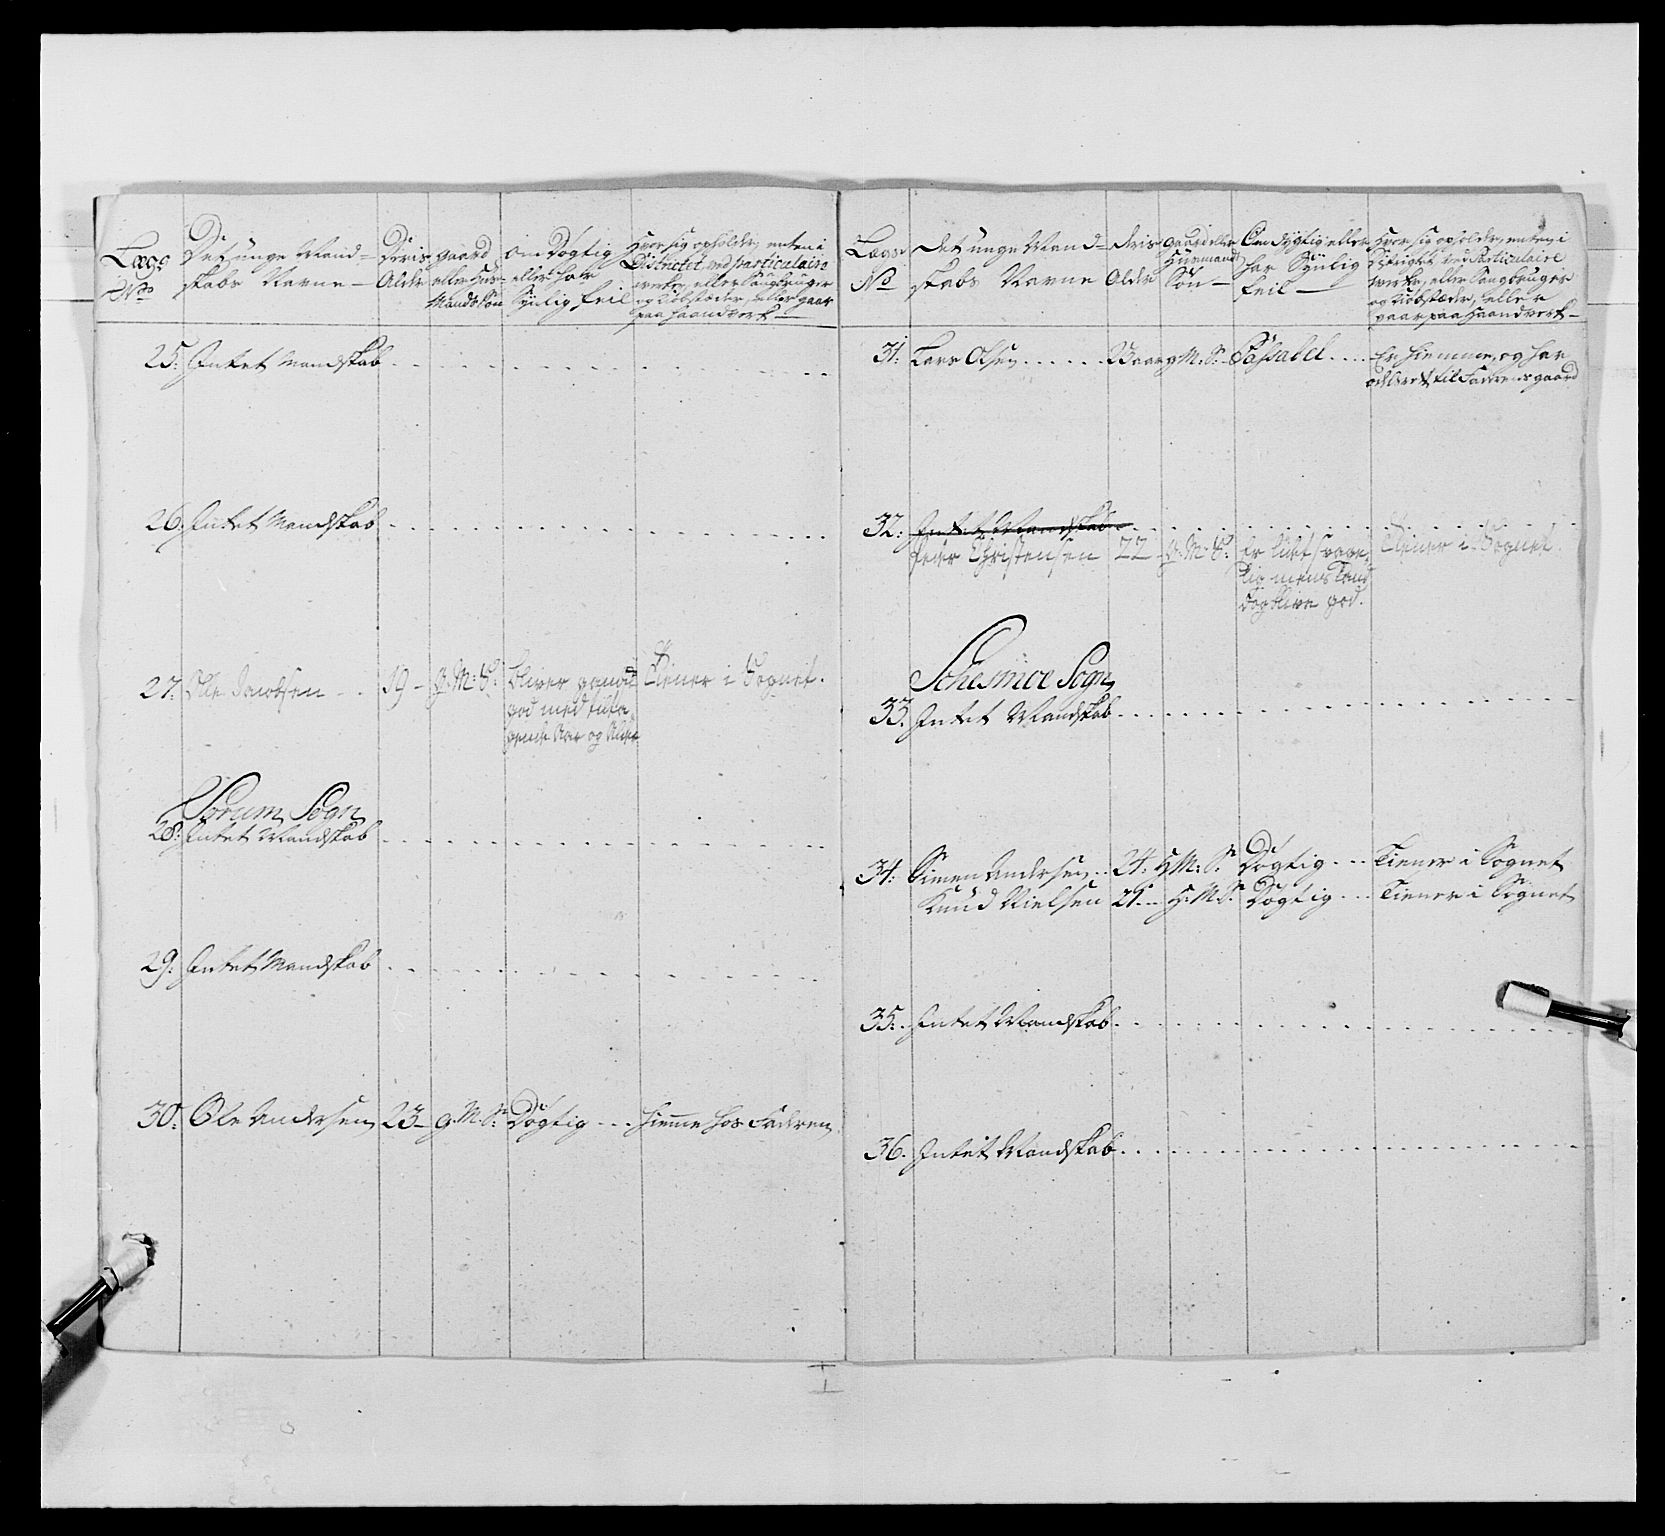 Lægs No
Det unge Mand-
skabs Navne
Deris Alder
gaard eller Huus-
Mands Søn
om Dögtig
eller have
Synlig feil
Hvor sig opholder, enten i
Districtet ved particulaire
werker, eller Saugbruger
og Kiöbstæder, eller gaar
paa Haandverk
25. Intet Mandskab
26. Intet Mandskab
27. Ole Jacobsen 19 - g: M: S: bliver
god med
Aar og Alder
Tiener i Sognet.
Sörum Sogn
28: Intet Mandskab
29. Intet Mandskab
30. Ole Andersen 23 g. M. S: Dögtig Hiemme hos Faderen
Lægs No
det unge Mand-
skabs Navne
deris Alder
gaard eller
Huusmands
Sön
Om dygtig eller
har Synlig
feil
Hvor sig opholder, enten i
Districtet ved Particulaire
Werker, eller Saugbruger
og Kiöbstæder, eller
gaar paa Haandverk
31: Lars Olsen g M. S. Passabel Er hiemme, og har
til Faderens gaard
32. Intet Mandskab
Peder Christensen 22 - g. M. S: Er lidt
mens kand
dog blive god.
Tiener i Sognet.
Schesmoe Sogn
33. Intet Mandskab
34: Simen Andersen 24: H M: S. Dögtig Tiener i Sognet
Knud Nielsen 21 H. M. S. Dögtig Tiener i Sognet
35. Intet Mandskab
36. Intet Mandskab